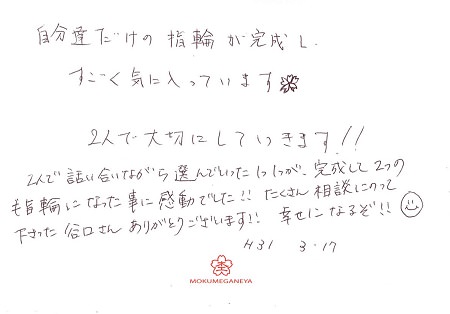 自分達だけの指輪が完成し、
すごく気に入っています
2人で大切にしていきます!!
2人で話し合いながら選んでいった1つ1つが、完成して2つの
指輪になった事に感動でした!! たくさん相談にのって
下さった谷口さんありがとうございます!! 幸せになるぞ!!
H31 3.17
MOKUMEGANEYA